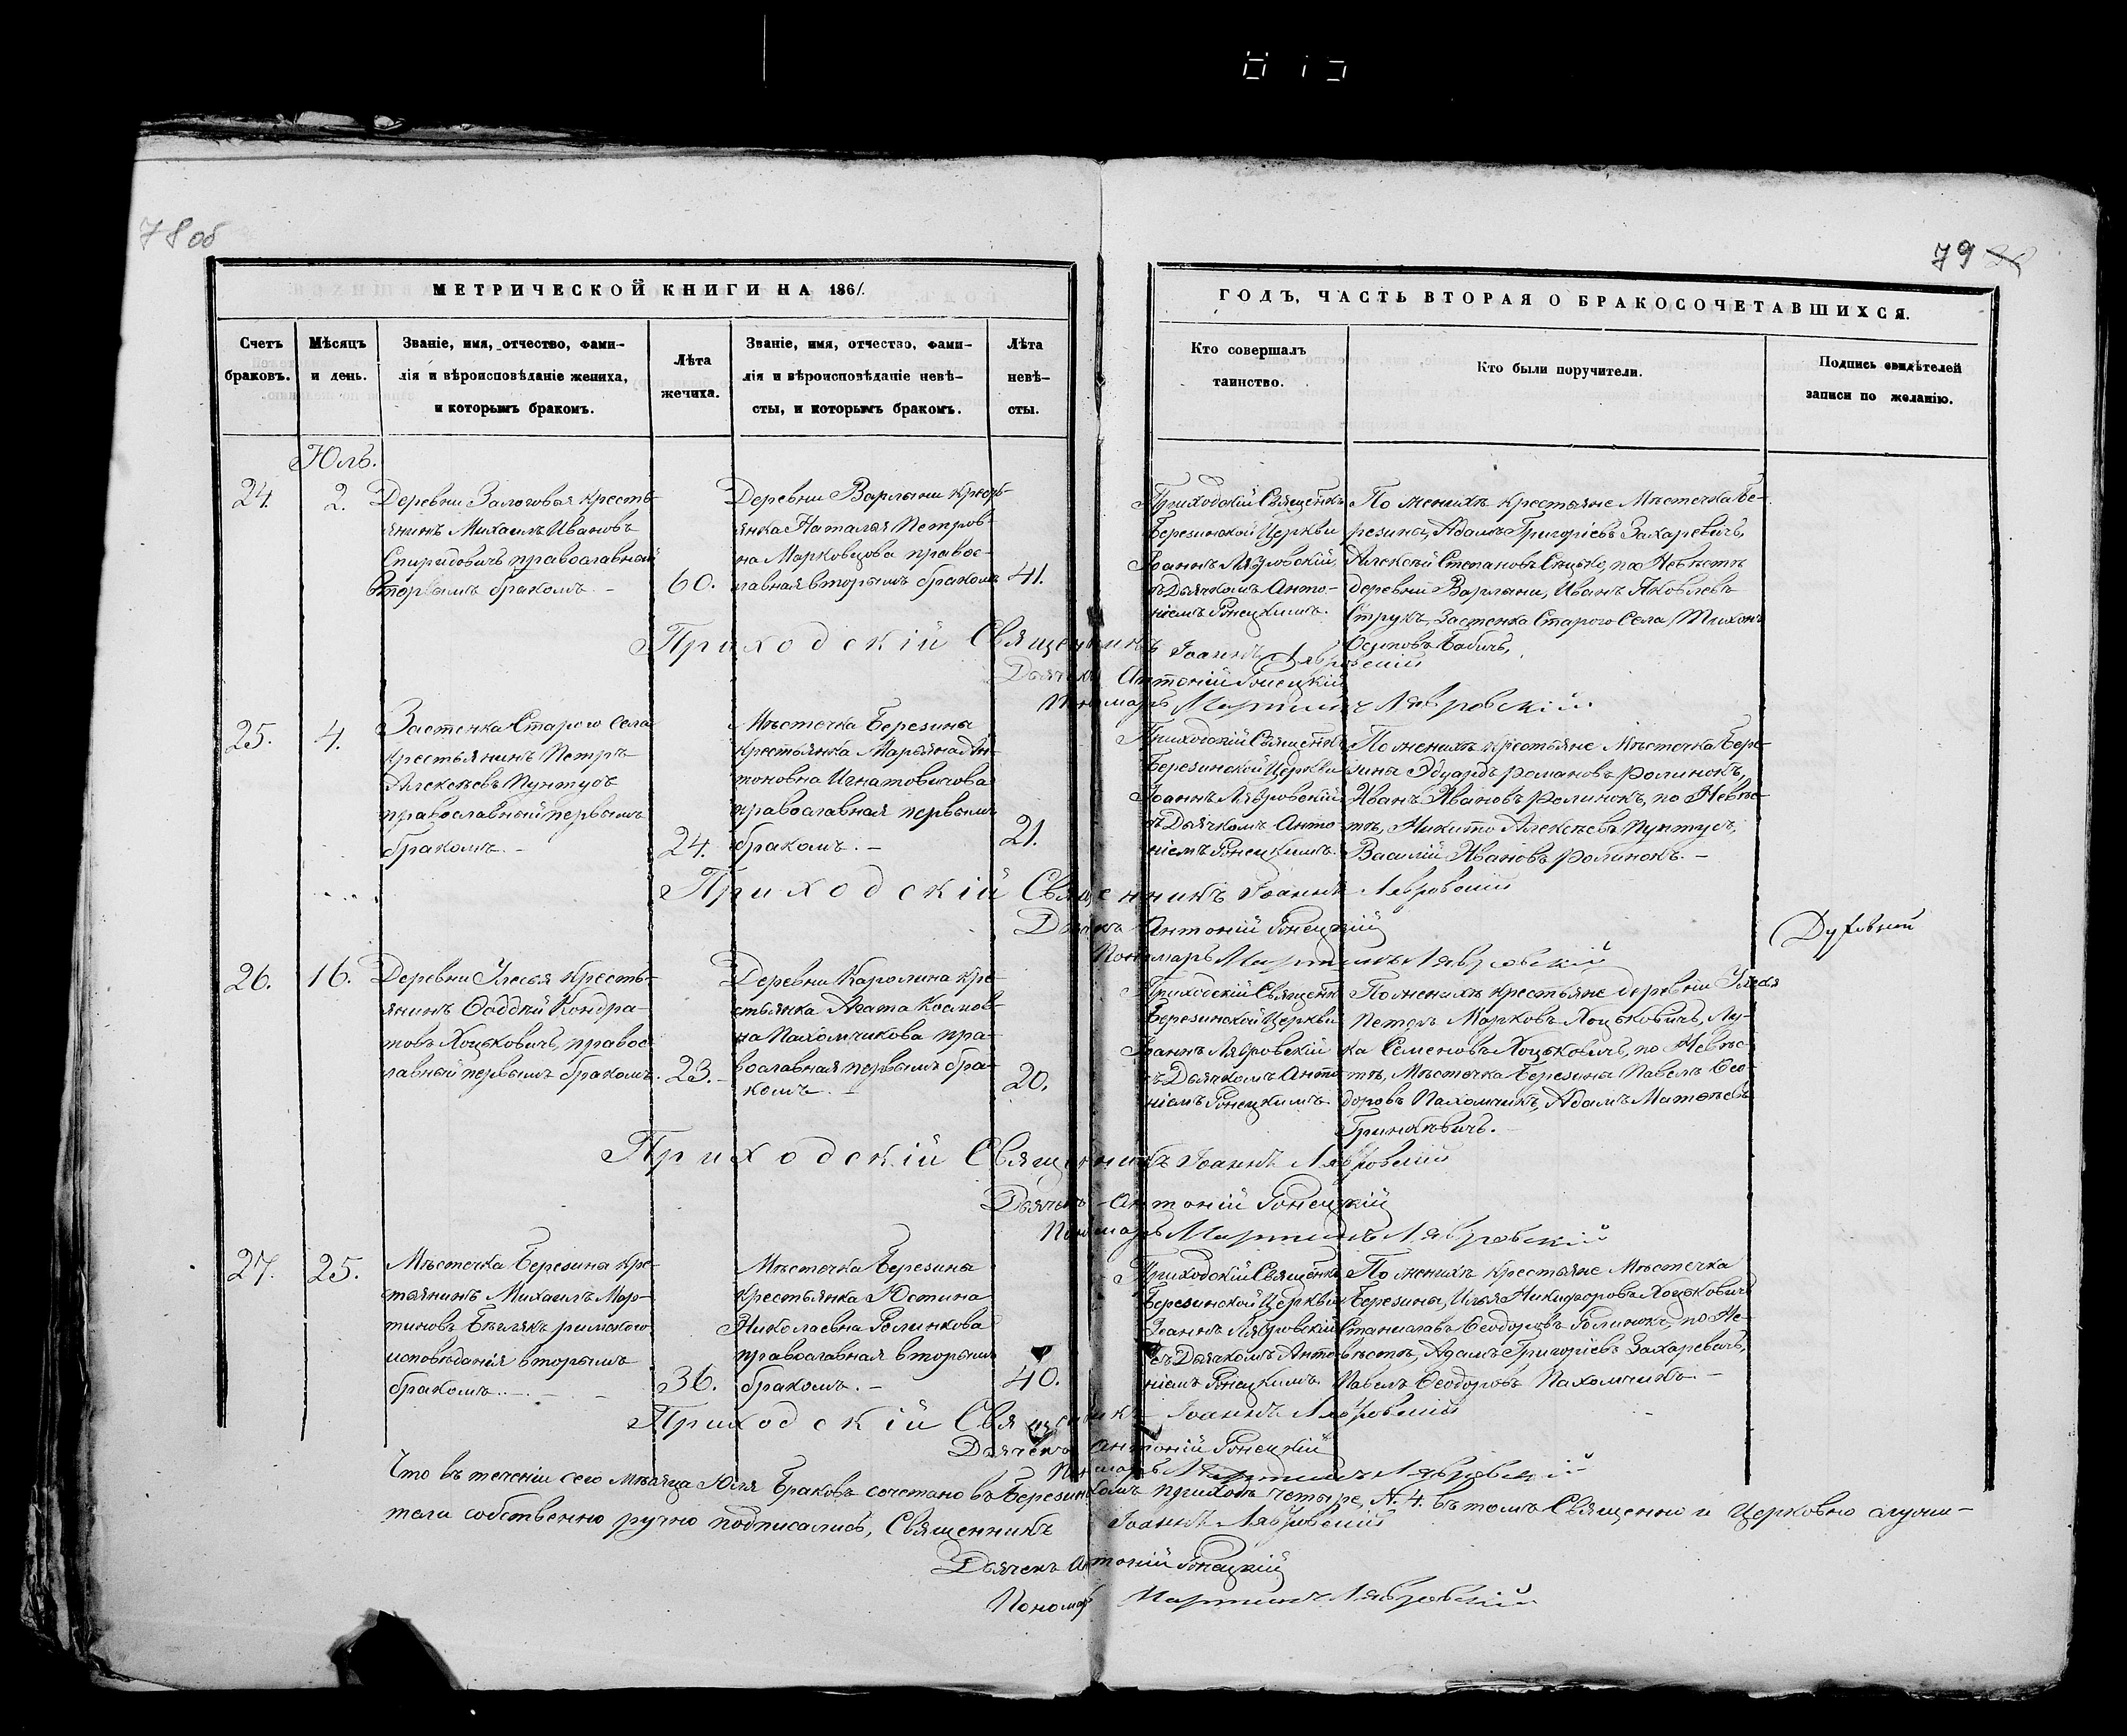 78 об
79
МЕТРИЧЕСКОЙ КНИГИ НА 1861.
ГОДЪ, ЧАСТЬ ВТОРАЯ О БРАКОСОЧЕТАВШИХСЯ.
Счетъ браковъ.
Мѣсяцъ и день.
Званіе, имя, отчество, фами-
лія и вѣроисповѣданіе жениха,
и которымъ бракомъ.
Лѣта
жениха.
Званіе, имя, отчество, фами-
лія и вѣроисповѣданіе невѣ-
сты, и которымъ бракомъ.
Лѣта
невѣ-
сты.
Кто совершалъ
таинство.
Кто были поручители.
Подпись свидѣтелей
записи по желанію.
Юль.
24.
2.
Деревни Залоговья кресть-
янинъ Михаилъ Ивановъ
Спиридовичъ православный
вторымъ бракомъ. –
60.
Деревни Варлыни кресть-
янка Наталья Петров-
на Марковцова правос-
лавная вторымъ бракомъ
41.
Приходскій Священикъ
Березинской Церкви
Іоаннъ Лявровскій,
съ Дьячкомъ Анто-
ніемъ Гонецкимъ.
По женихѣ крестьяне Мѣстечка Бе-
резины, Адамъ Григоріевъ Захаревичъ,
Алексѣй Степановъ Сицько, по Невѣстѣ
деревни Варлыни, Иванъ Яковлевъ
Струкъ, Застенка Старого Села Тихонъ
Осиповъ Бабичъ,
Приходскій Священникъ Іоаннъ Лявровскій
Дьячекъ Антоній Гонецкій
Пономарь Мартинъ Лявровскій
25.
4.
Застенка Старого Села
крестьянинъ Петръ
Алексѣевъ Пунтусъ
православный первымъ
бракомъ. –
24.
Мѣстечка Березины
крестьянка Марьяна Ан-
тоновна Игнатовичова
православная первымъ
бракомъ. –
21.
Приходскій Священикъ
Березинской Церкви
Іоаннъ Лявровскій
съ Дьячкомъ Анто-
ніемъ Гонецкимъ.
По женихѣ крестьяне Мѣстечка Бере-
зины Эдуардъ Романовъ Ролинокъ,
Иванъ Ивановъ Ролинокъ, по Невѣс-
тѣ, Никито Алексѣевъ Пунтусъ,
Василій Ивановъ Ролинокъ. –
Приходскій Священникъ Іоаннъ Лявровскій
Дьячекъ Антоній Гонецкій
Пономарь Мартинъ Лявровскій
Духовный
26.
16.
Деревни Улесья кресть-
янинъ Фаддей Кондра-
товъ Хоцьковичъ, правос-
лавный первымъ бракомъ.
23.
Деревни Каролина кре-
стьянка Агата Космов-
на Пахомчикова пра-
вославная первымъ бра-
комъ. –
20.
Приходскій Священикъ
Березинской Церкви
Іоаннъ Лявровскій
съ Дьячкомъ Анто-
ніемъ Гонецкимъ.
По женихѣ крестьяне деревни Улесья
Петръ Марковъ Хоцьковичъ, Лу-
ка Семеновъ Хоцьковичъ, по Невѣс-
тѣ, Мѣстечка Березины Павелъ Ѳео-
доровъ Пахомчикъ, Адамъ Матѳѣевъ
Гринкевичъ.
Приходскій Священникъ Іоаннъ Лявровскій
Дьячекъ Антоній Гонецкій
Пономарь Мартинъ Лявровскій
27.
25.
Мѣстечка Березины кре-
стьянинъ Михаилъ Мар-
тиновъ Бѣлякъ римского
исповѣданія вторымъ
бракомъ. – –
36.
Мѣстечка Березины
крестьянка Юстина
Николаевна Ролинкова
православная вторымъ
бракомъ. –
40.
Приходскій Священикъ
Березинской Церкви
Іоаннъ Лявровскій
съ Дьячкомъ Анто-
ніемъ Гонецкимъ.
По женихѣ крестьяне Мѣстечка
Березины, Илья Никифоровъ Хоцьковичъ
Станиславъ Ѳеодоровъ Ролинокъ, по Не-
вѣстѣ, Адамъ Григоріевъ Захаревичъ,
Павелъ Ѳеодоровъ Пахомчикъ. –
Приходскій Священникъ Іоаннъ Лявровскій
Дьячекъ Антоній Гонецкій
Пономарь Мартинъ Лявровскій
Что въ теченіи сего мѣсяца Юля браковъ сочетано въ Березинскомъ приходѣ четыре, N. 4. въ томъ Священно и Церковно служи-
тели собственно ручно подписались, Священникъ Іоаннъ Лявровскій
Дьячекъ Антоній Гонецкій
Пономарь Мартинъ Лявровскій